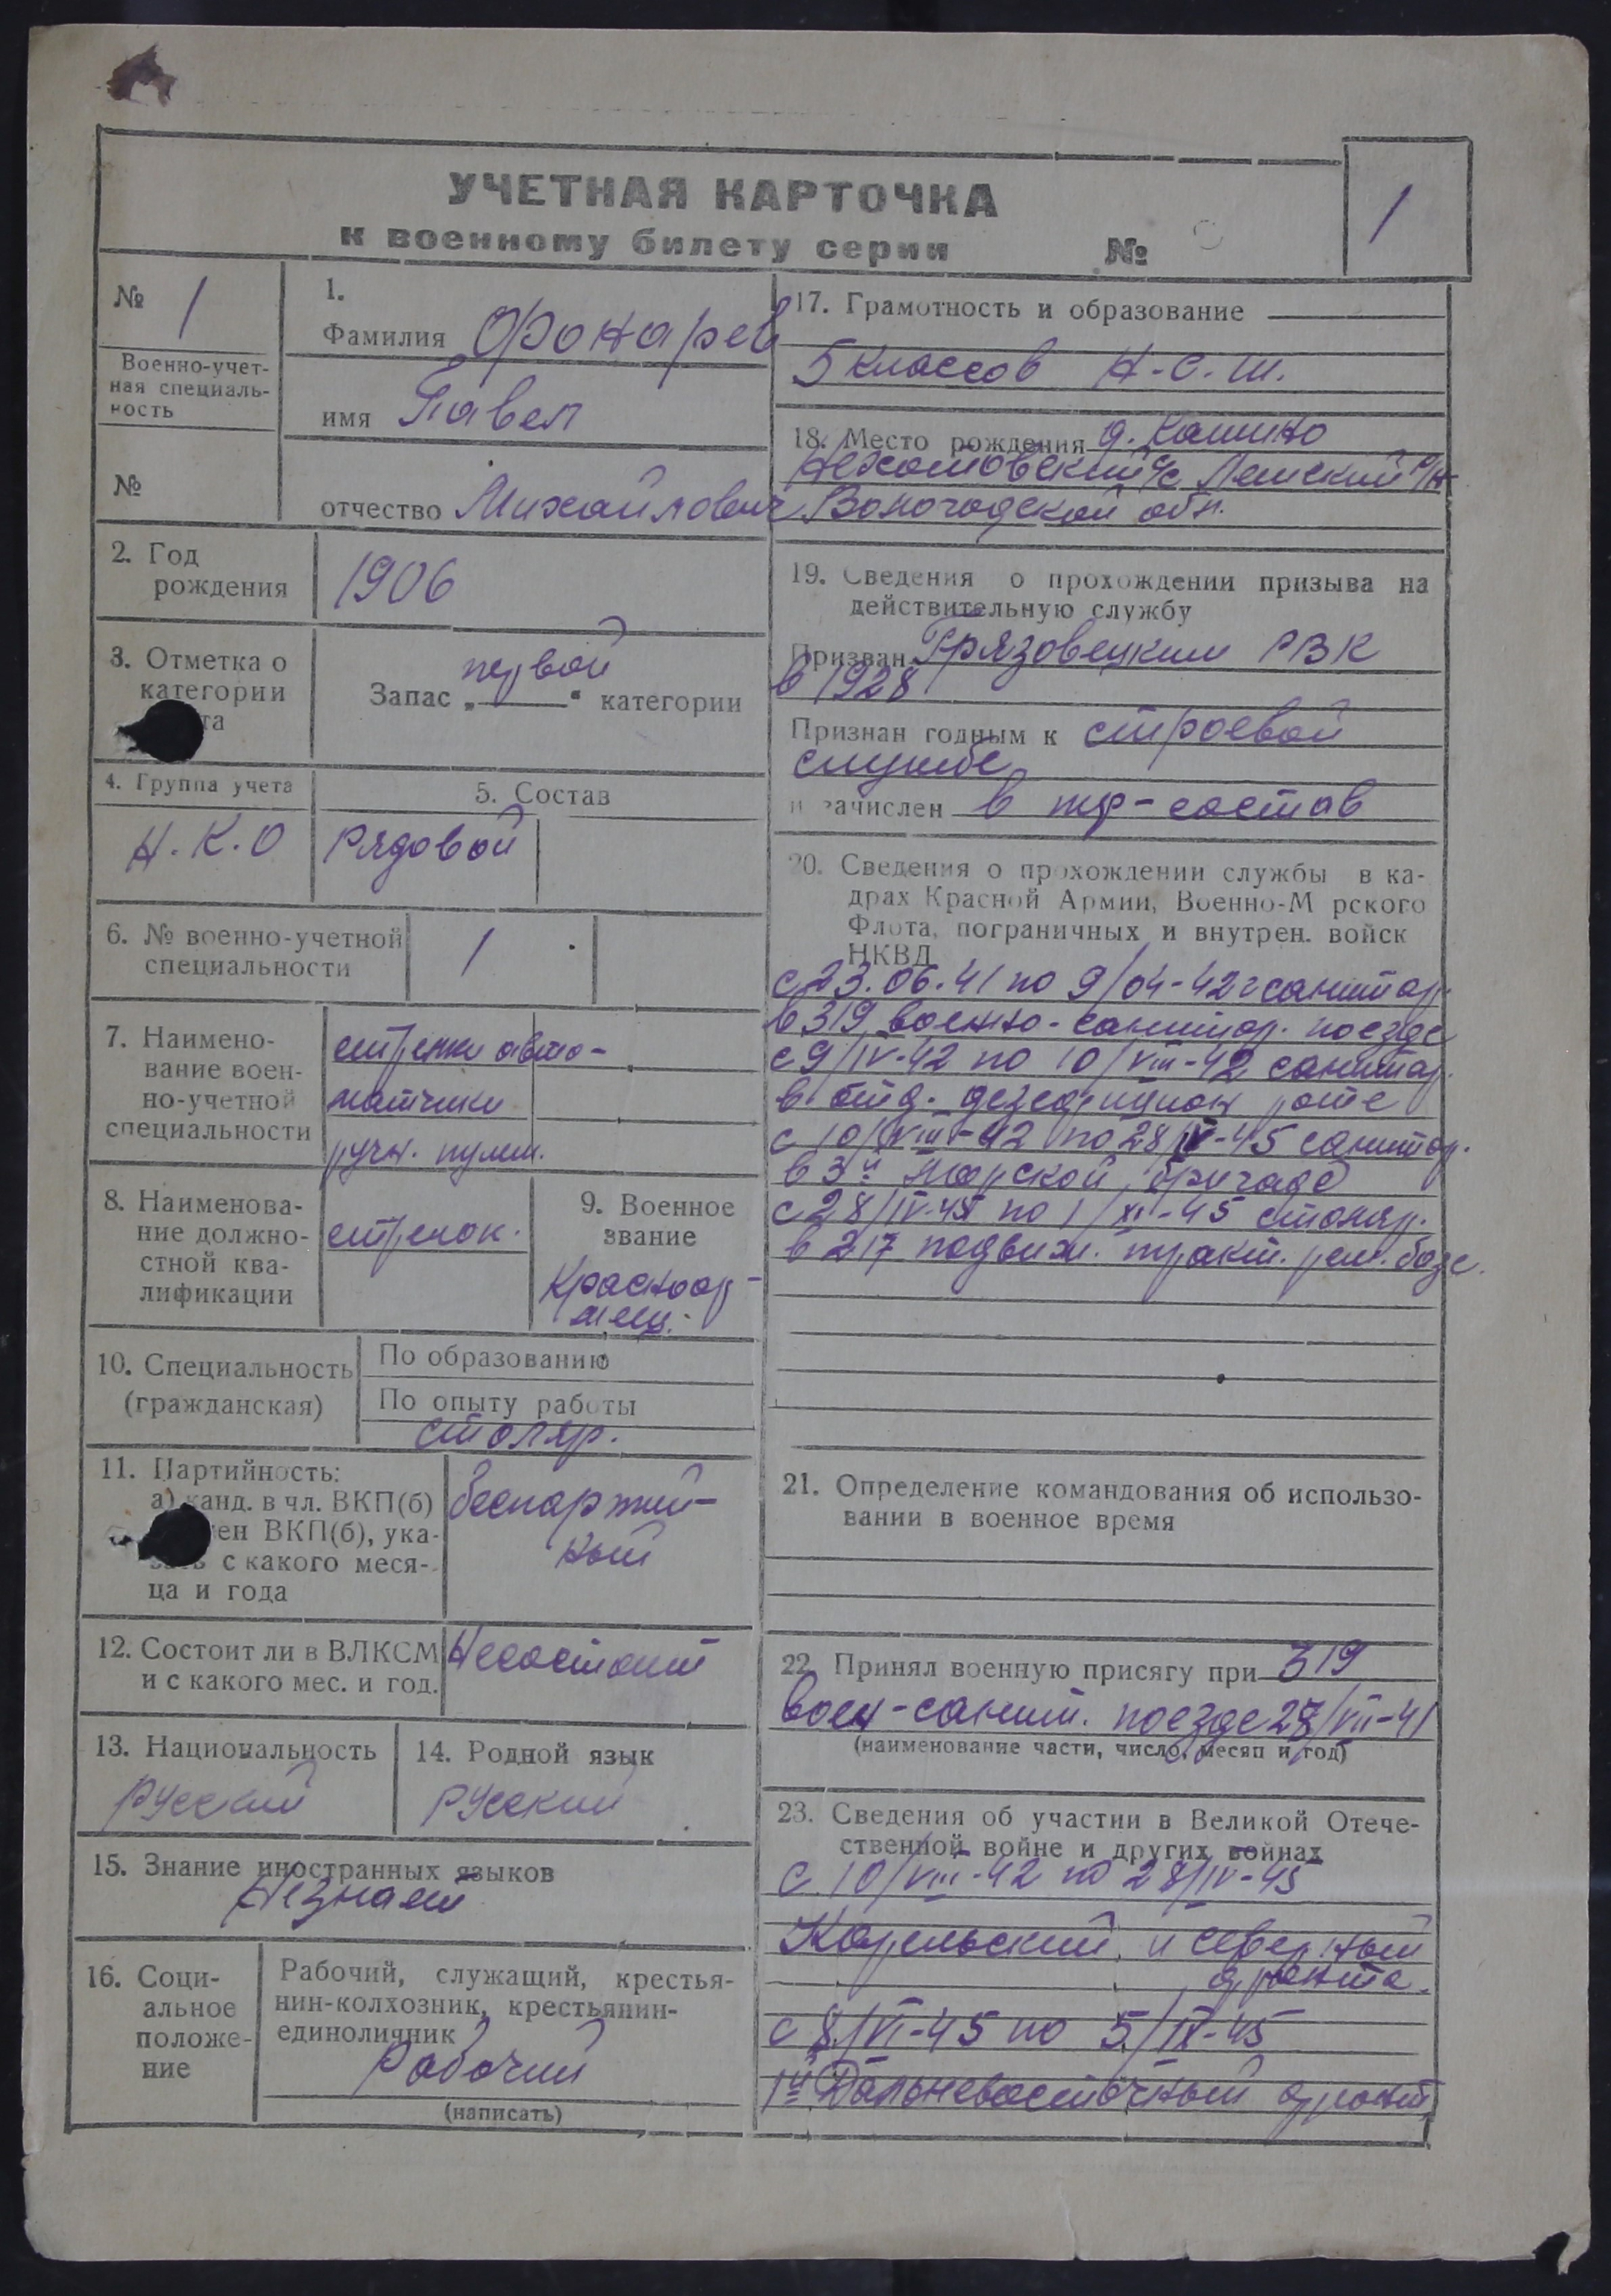 УЧЕТНАЯ КАРТОЧКА
к военному билету серии №
1
№ 1
Военно-учет-
ная специаль-
ность
№
1.
Фамилия Фонарев
имя Павел
отчество Михайлович
2. Год
рождения
1906
3. Отметка о
категории
та
Запас „первой“ категории
4. Группа учета
Н.К.О
5. Состав
Рядовой
6. № военно-учетной
специальности
1
7. Наимено-
вание воен-
но-учетной
специальности
стрелки авто-
матчики
ручн. пулем.
8. Наименова-
ние должно-
стной ква-
лификации
стрелок.
9. Военное
звание
Красноар-
меец.
10. Специальность
(гражданская)
По образованию
По опыту работы
столяр.
11. Партийность:
а) канд. в чл. ВКП(б)
ен ВКП(б), ука-
зать с какого меся-
ца и года
беспартий-
ный
12. Состоит ли в ВЛКСМ
и с какого мес. и год.
Несостоит
13. Национальность
Русский
14. Родной язык
Русский
15. Знание иностранных языков
Незнает
16. Соци-
альное
положе-
ние
Рабочий, служащий, крестья-
нин-колхозник, крестьянин-
единоличник
Рабочий
(написать)
17. Грамотность и образование
5 классов Н.С.Ш.
18. Место рождения д. Кашино
с/с Лежский р/н
Вологодской обл.
19. Сведения о прохождении призыва на
действительную службу
Призван Грязовецким РВК
в 1928
Признан годным к строевой
службе
и зачислен в тер-состав
20. Сведения о прохождении службы в ка-
драх Красной Армии, Военно-М рского
Флота, пограничных и внутрен. войск
НКВД
с 23.06.41 по 9/04-42 г санитар.
в 319 военно-санитар. поезде
с 9/IV-42 по 10/VIII-42 санитар.
в отд. роте
с 10/VIII-42 по 28/IV-45 санитар.
в 3й Морской бригаде
с 28/IV-45 по 1/XI-45 столяр.
в 217 подвиж. тракт. рем. базе.
21. Определение командования об использо-
вании в военное время
22. Принял военную присягу при 319
воен-санит. поезде 27/VII-41
(наименование части, число, месяц и год)
23. Сведения об участии в Великой Отече-
ственной войне и других войнах
с 10/VIII-42 по 28/IV-45
Карельский и северный
фронта.
с 8/VI-45 по 5/IX-45
1й Дальневосточный фронт